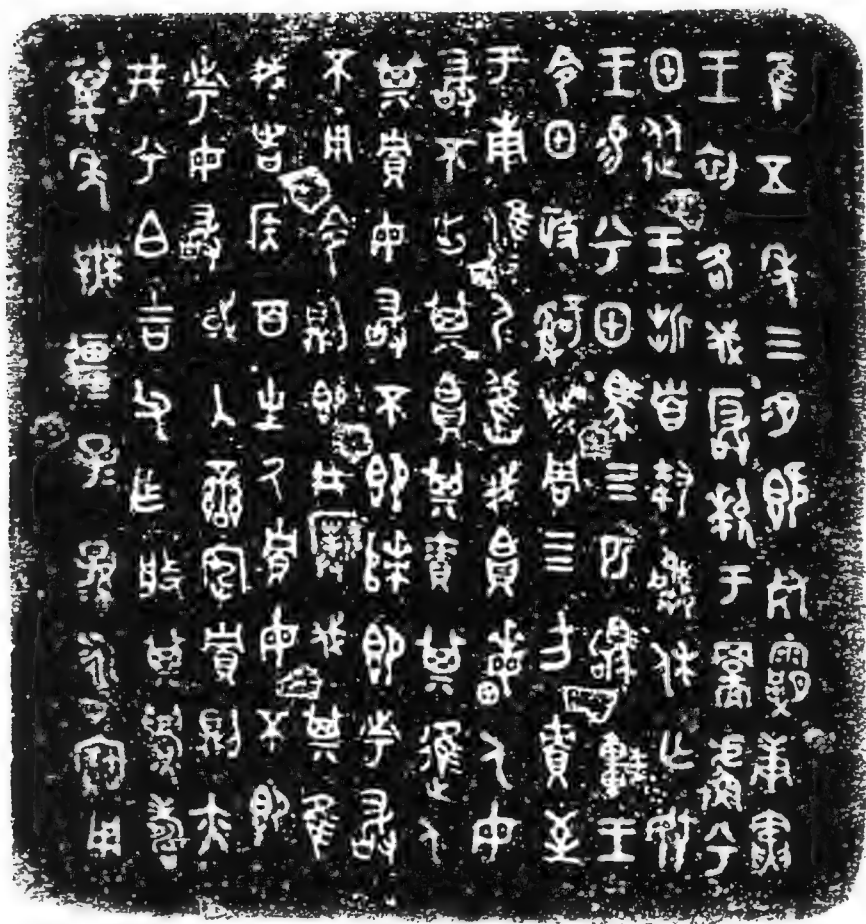 隹五年三月既死霸庚寅
王初各伐玁狁于䣙𧇊兮
甲從王折首執訊休亡敃
王易兮甲馬四匹駒車王
令甲政𤔲成周四方責至
于南淮尸舊我𠂤畮人毋
敢不出其𠂤其責其進人
其貯毋敢不即次即市敢
不用令則即井撲伐其隹
我者侯百生厥貯毋不即
市毋敢或入蠻宄貯則亦
井兮白吉父乍般其眉壽
萬年無疆子孫永寶用